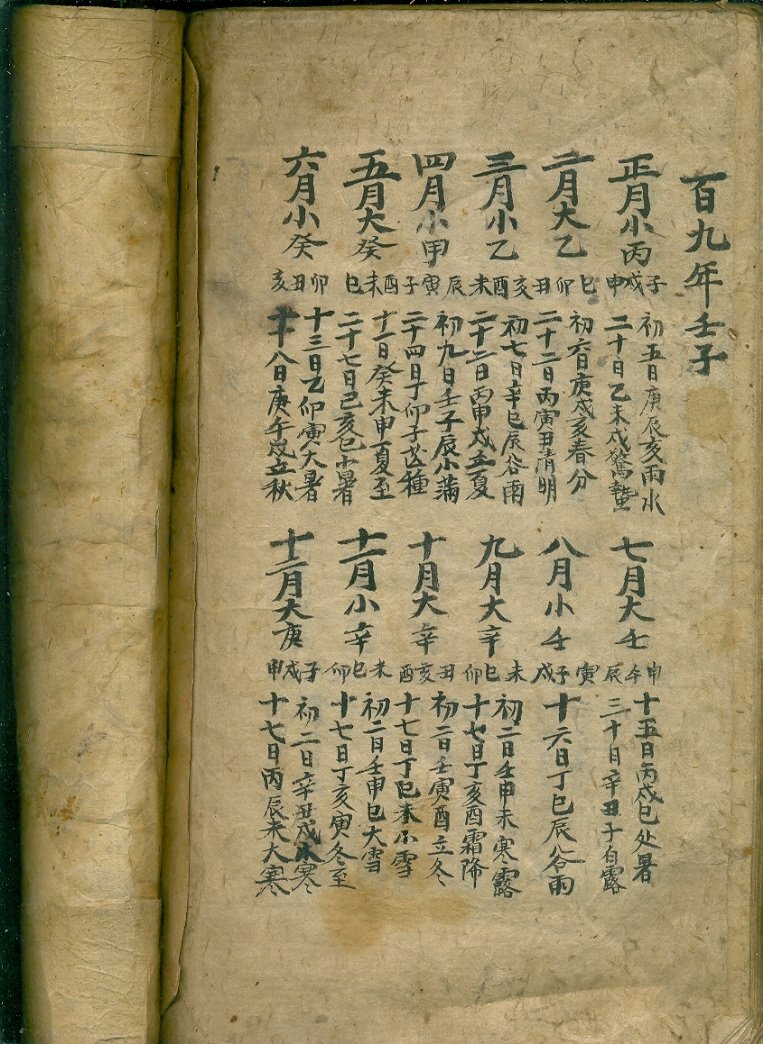 百九年壬子
正月小丙
子戌申
初五日庚辰亥雨水
二十日乙未戌驚蟄
二月大乙
巳卯丑
初六日庚戌亥春分
二十二日丙寅丑清明
三月小乙
亥酉未
初七日辛巳辰谷雨
二十二日丙申戌立夏
四月小甲
辰寅子
初九日壬子辰小蒲
二十四日丁卯子芒種
五月大癸
酉未巳
十一日癸未申夏至
二十七日己亥巳小暑
六月小癸
卯丑亥
十三日乙卯寅大暑
八日庚午戌立秋
七月大壬
申午辰
十五日丙戌巳处暑
三十日辛丑子白露
八月小壬
寅子戌
十六日丁巳辰谷雨
九月大辛
未巳卯
初二日壬申未寒露
十七日丁亥酉霜降
十月大辛
丑亥酉
初二日壬寅酉立冬
十七日丁巳未小雪
十一月小辛
未巳卯
初二日壬申巳大雪
十七日丁亥寅冬至
十二月大庚
子戌申
初二日辛丑戌寒
十七日丙辰未大寒